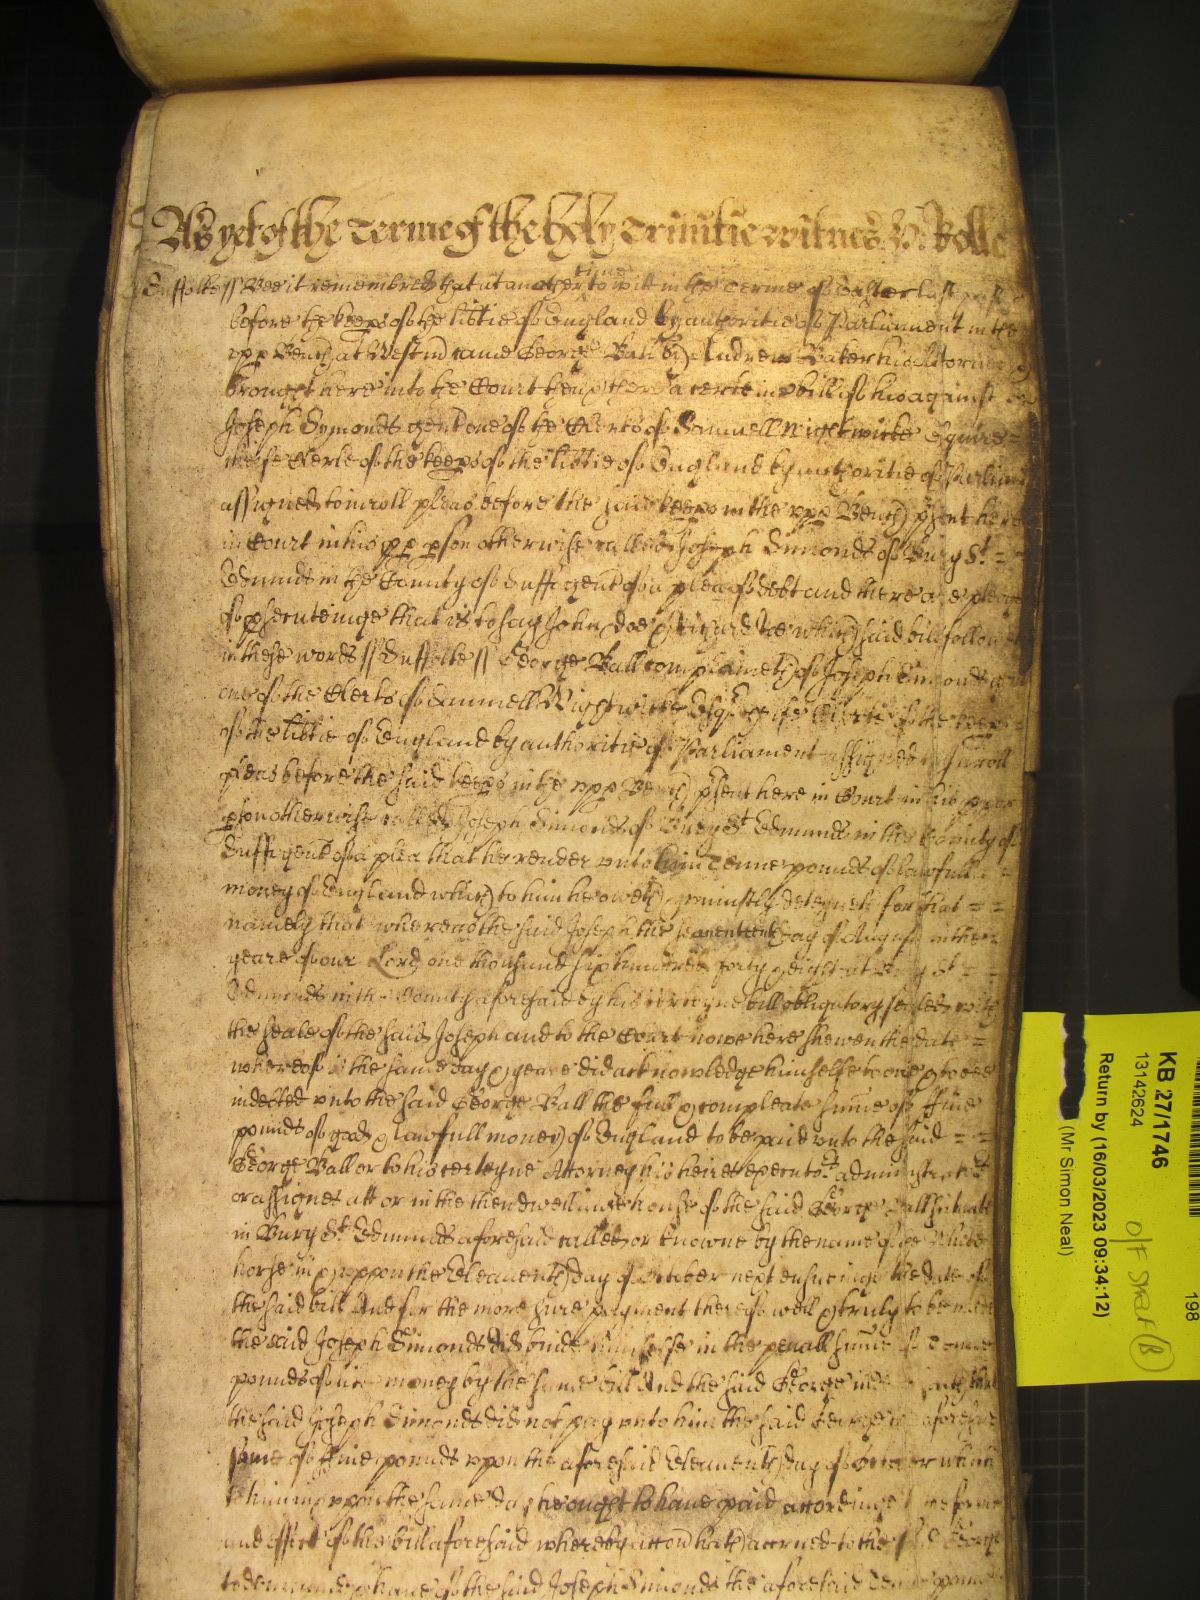 As yet of the Terme of the holy Trinitie witnes H. Rolle
Suffolke ss Bee it remembred that att another time to witt in the Terme of Easter last past
before the keeps of the libtie of England by authoritie of Parliament in the
upp Bench at Westm came George Ball by Andrew Baker his Attorney &
brought here into the Court then there a certeine bill of his against
Joseph Symonds gent one of the Clerks of Samuell Wightwicke Esquire =
cheife Clerke of the keeps of the libtie of England by authoritie of Parliamt
assigned to inroll pleas before the said keeps in the upp Bench psent here
in Court in his pp pson otherwise called Joseph Simonds of Bury St = =
Edmunds in the County of Suff gent of a plea of debt and there are pledges
of psecuteinge that is to say John Doe & Richard Roe which said bill followeth
in these words ss Suffolke ss George Ball complaineth of Joseph Simonds gent
one of the Clerks of Samuell Wightwicke Esqr cheife Clerke of the keeps =
of the libtie of England by authoritie of Parliament assigned to inroll
pleas before the said keeps in the upp Bench psent here in Court in his pper
pson otherwise called Joseph Simonds of Bury St Edmunds in the County of
Suff gent of a plea that he render unto him Tenne pounds of lawfull =
money of England which to him he oweth & uniustly deteyneth for that = =
namely that whereas the said Joseph the seaventeenth day of August in the =
yeare of our Lord one thousand six hundred forty & eight at Bury St = =
Edmunds in the County aforesaid by his certeyne bill obligatory sealed with
the seale of the said Joseph and to the Court nowe here shewen the date =
whereof is the same day & yeare did acknowledge himselfe to owe & to bee
indebted unto the said George Ball the full & compleate summe of Five
pounds of good & lawfull money of England to be paid unto the said = =
George Ball or to his certeyne Attorney his heires executors administrators
or assignes att or in the then dwellinge house of the said George Ball scituate
in Bury St Edmunds aforesaid called or knowne by the name of the White
horse in & uppon the Eleaventh day of October next ensueinge the date of
the said bill And for the more sure payment thereof well & truly to be made
the said Joseph Simonds did binde himselfe in the penall summe of Tenne
pounds of like money by the same bill And the said George in saith that
the said Joseph Simonds did not pay unto him the said George the aforesaid
some of Five pounds uppon the aforesaid Eleaventh day of October which
to him uppon the same day he ought to have paid accordinge to the forme
and effect of the bill aforesaid whereby accon hath accrued to the said George
to demaund & have of the said Joseph Simonds the aforesaid Tenne pounds
KB 27/1746
13142624
Return by (16/03/2023 09:34:12)
(Mr Simon Neal)
198